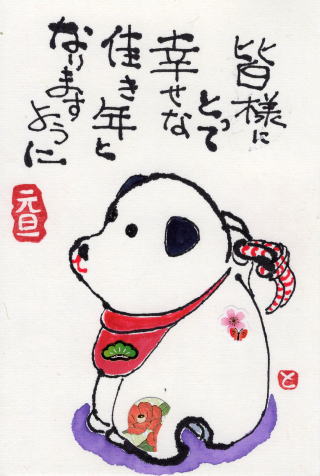 皆様に
とって
幸せな
佳き年と
なります
ように
元旦
と